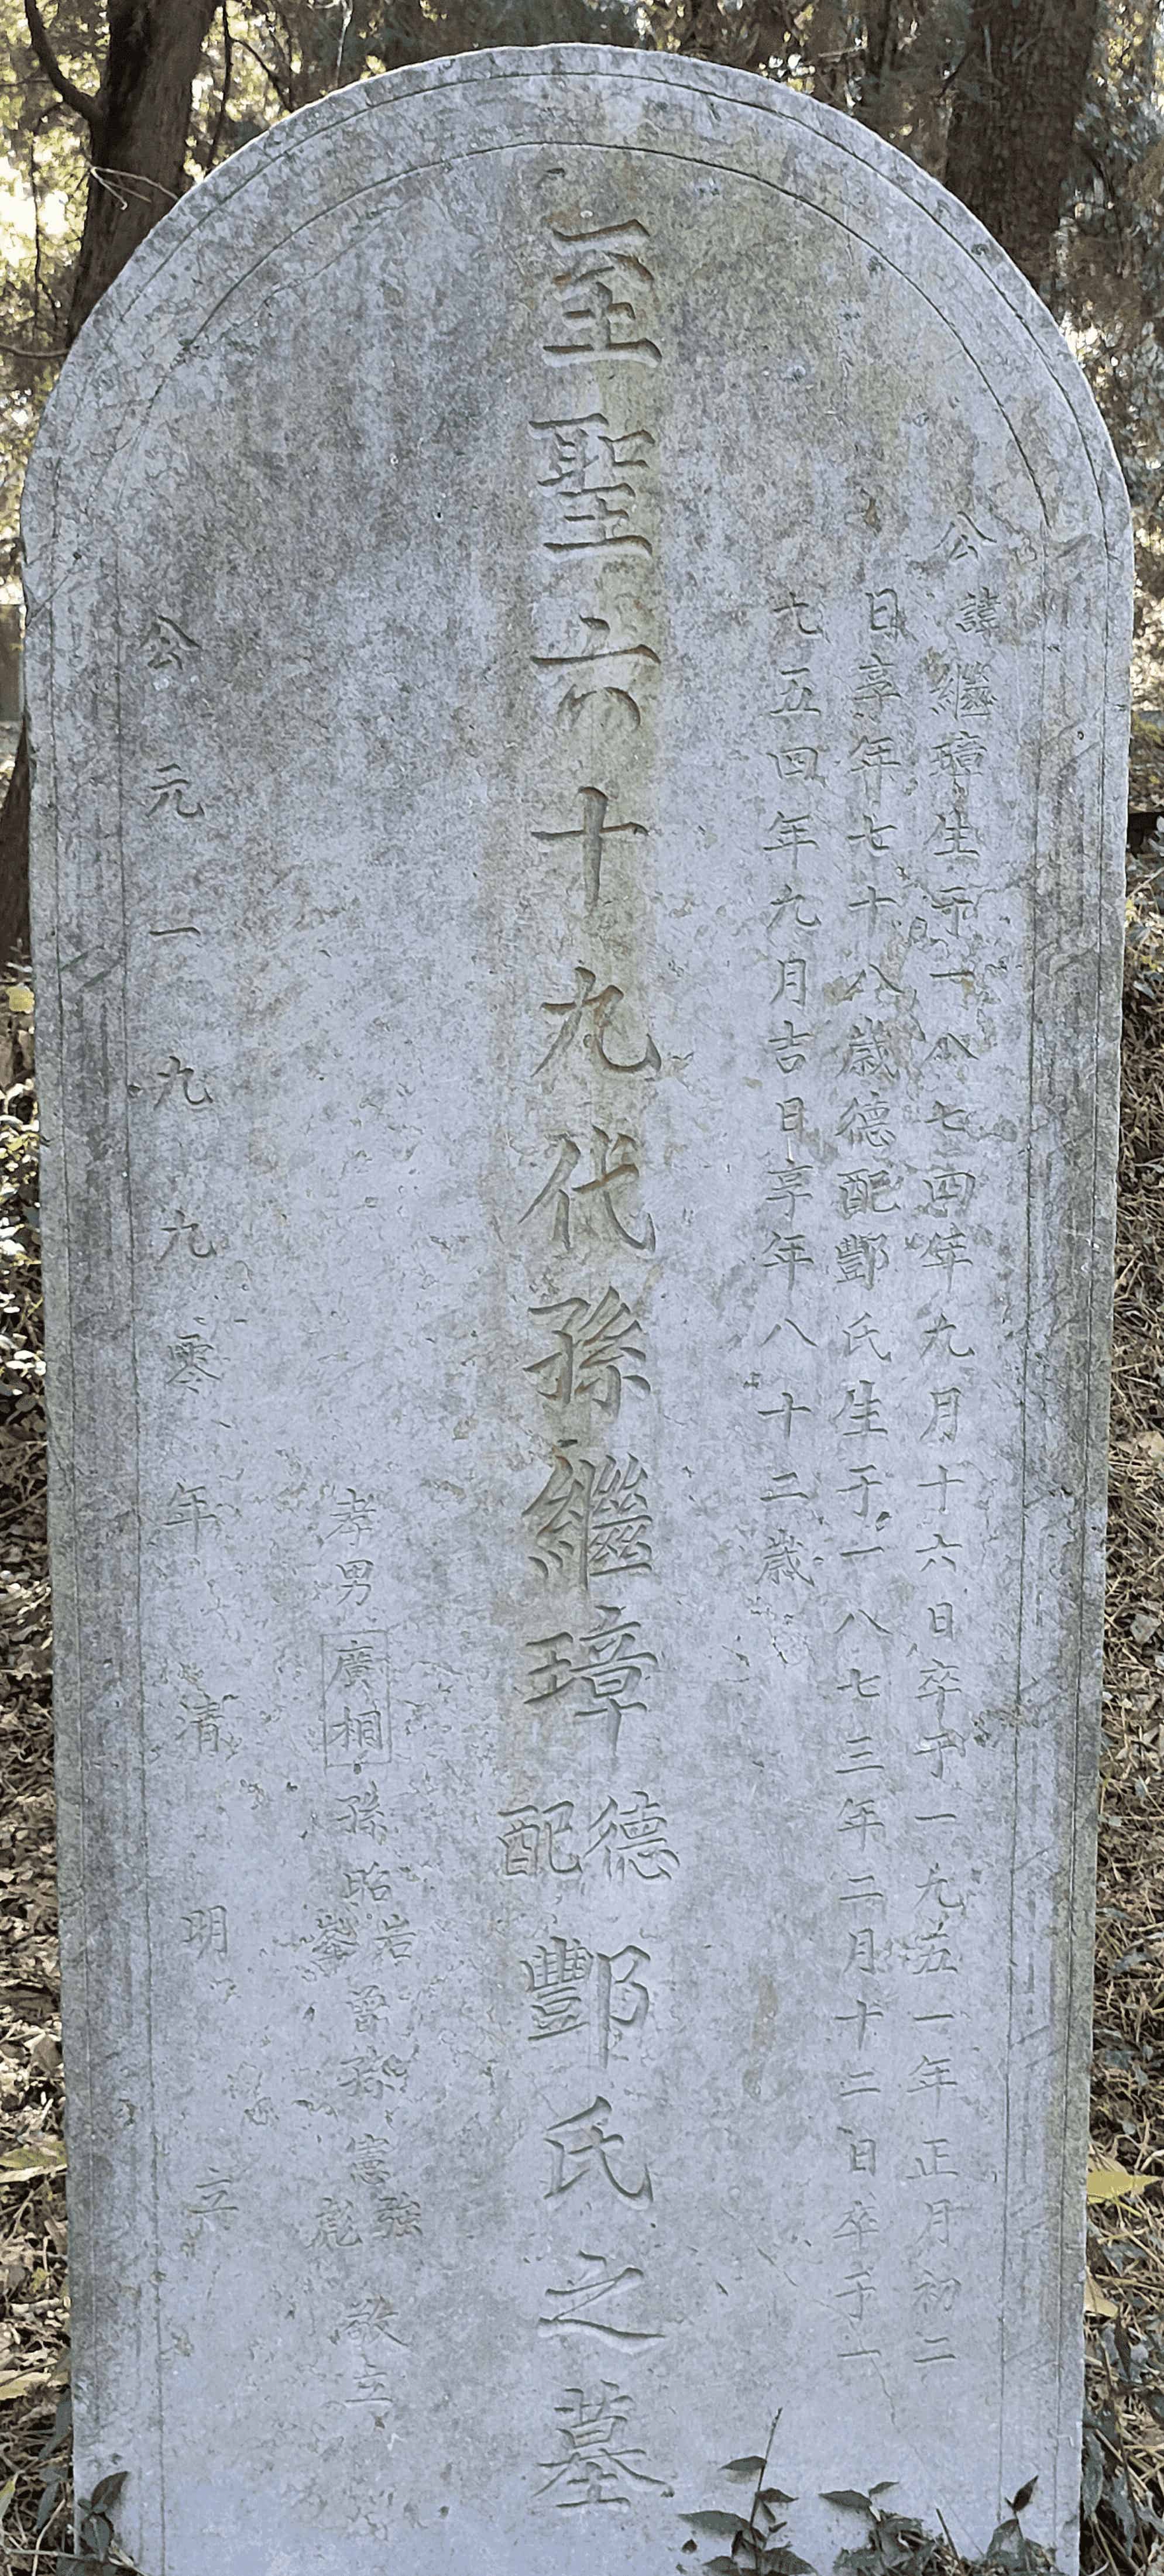 公諱繼璋生于一八七四年九月十六日卒于一九五一年正月初二
日享年七十八歲德配酆氏生于一八七三年二月十二日卒于一
七五四年九月吉日享年八十二歲
至聖六十九代孫繼璋德配酆氏之墓
孝男廣相孫昭岩峯曾孫憲強彪敬立
公元一九九零年清明立